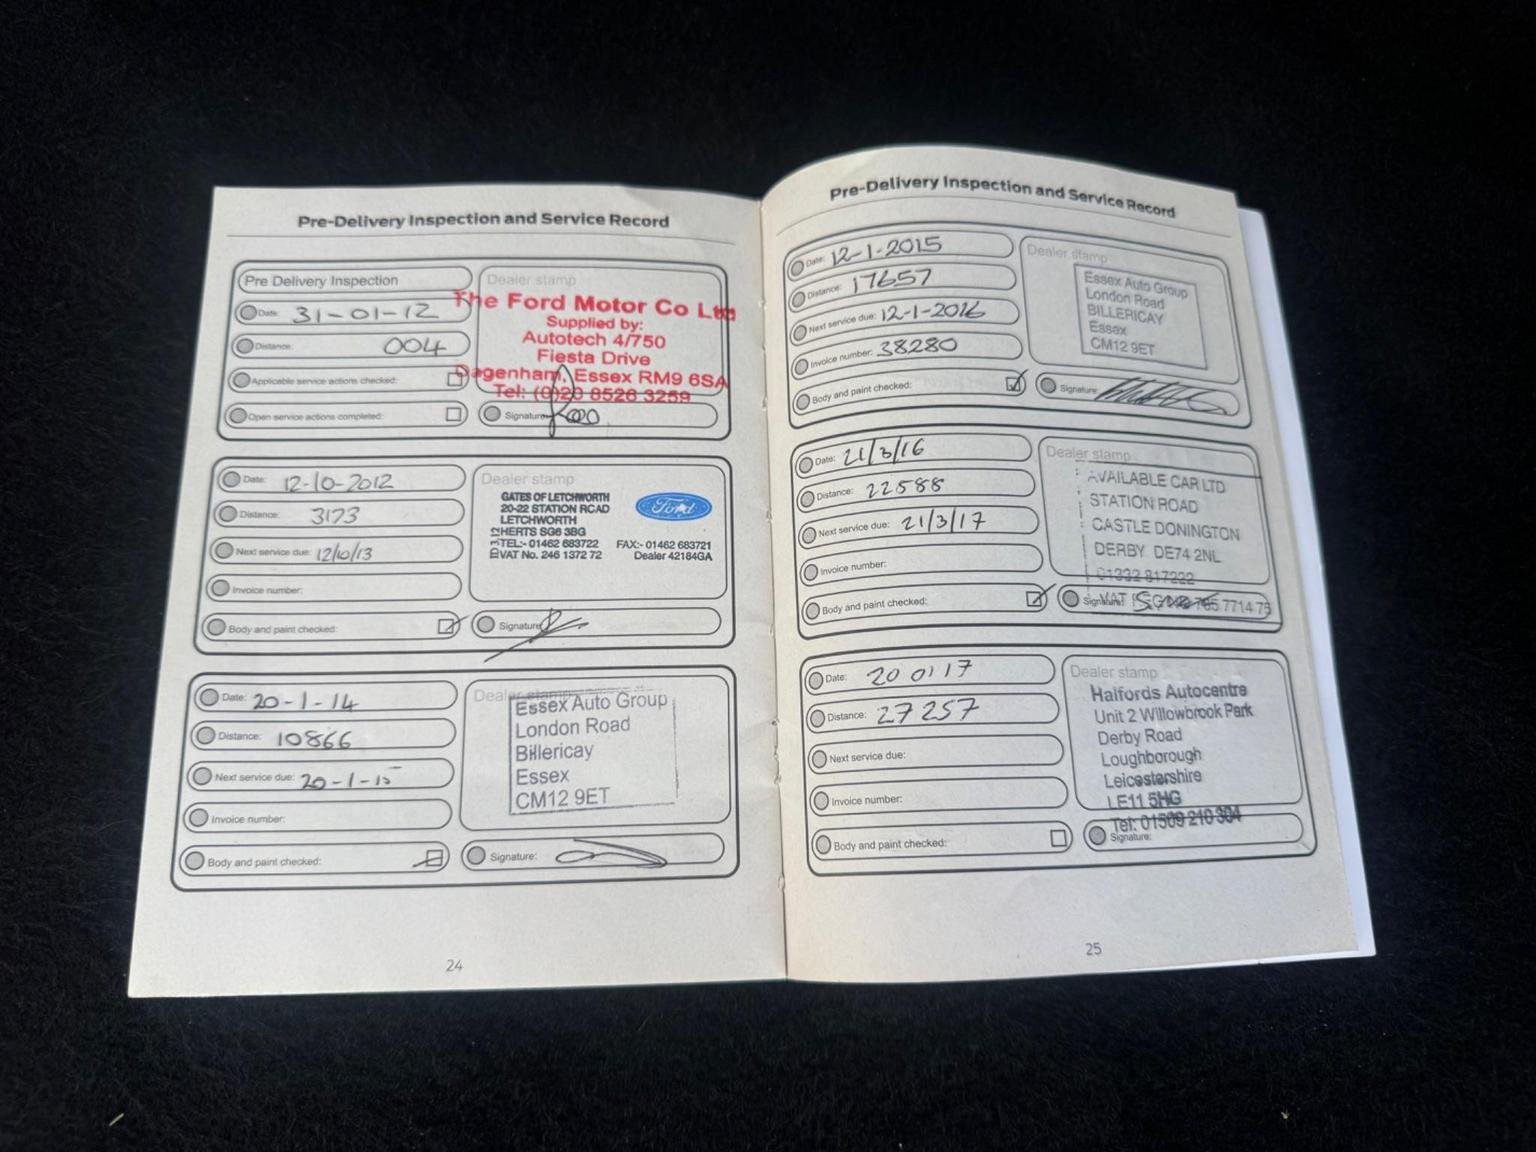 Pre-Delivery Inspection and Service Record
Pre Delivery Inspection
Date: 31-01-12
Distance: 004
Applicable service actions checked:
Open service actions completed:
Dealer stamp
The Ford Motor Co Ltd
Supplied by:
Autotech 4/750
Fiesta Drive
Dagenham, Essex RM9 6SA
Tel: (0)20 8526 3259
Signature:
Date: 12-10-2012
Distance: 3173
Next service due: 12/10/13
Invoice number:
Body and paint checked:
Dealer stamp
GATES OF LETCHWORTH
20-22 STATION ROAD
LETCHWORTH
HERTS SG6 3BG
TEL:- 01462 683722 FAX:- 01462 683721
VAT No. 246 1372 72 Dealer 42184GA
Ford
Signature:
Date: 20-1-14
Distance: 10866
Next service due: 20-1-15
Invoice number:
Body and paint checked:
Dealer stamp
Essex Auto Group
London Road
Billericay
Essex
CM12 9ET
Signature:
24
Pre-Delivery Inspection and Service Record
Date: 12-1-2015
Distance: 17657
Next service due: 12-1-2016
Invoice number: 38280
Body and paint checked:
Dealer stamp
Essex Auto Group
London Road
BILLERICAY
Essex
CM12 9ET
Signature:
Date: 21/3/16
Distance: 22588
Next service due: 21/3/17
Invoice number:
Body and paint checked:
Dealer stamp
AVAILABLE CAR LTD
STATION ROAD
CASTLE DONINGTON
DERBY DE74 2NL
01332 817222
Signature: VAT 765 7714 75
Date: 20 01 17
Distance: 27257
Next service due:
Invoice number:
Body and paint checked:
Dealer stamp
Halfords Autocentre
Unit 2 Willowbrook Park
Derby Road
Loughborough
Leicestershire
LE11 5HG
Tel: 01509 210 304
Signature:
25